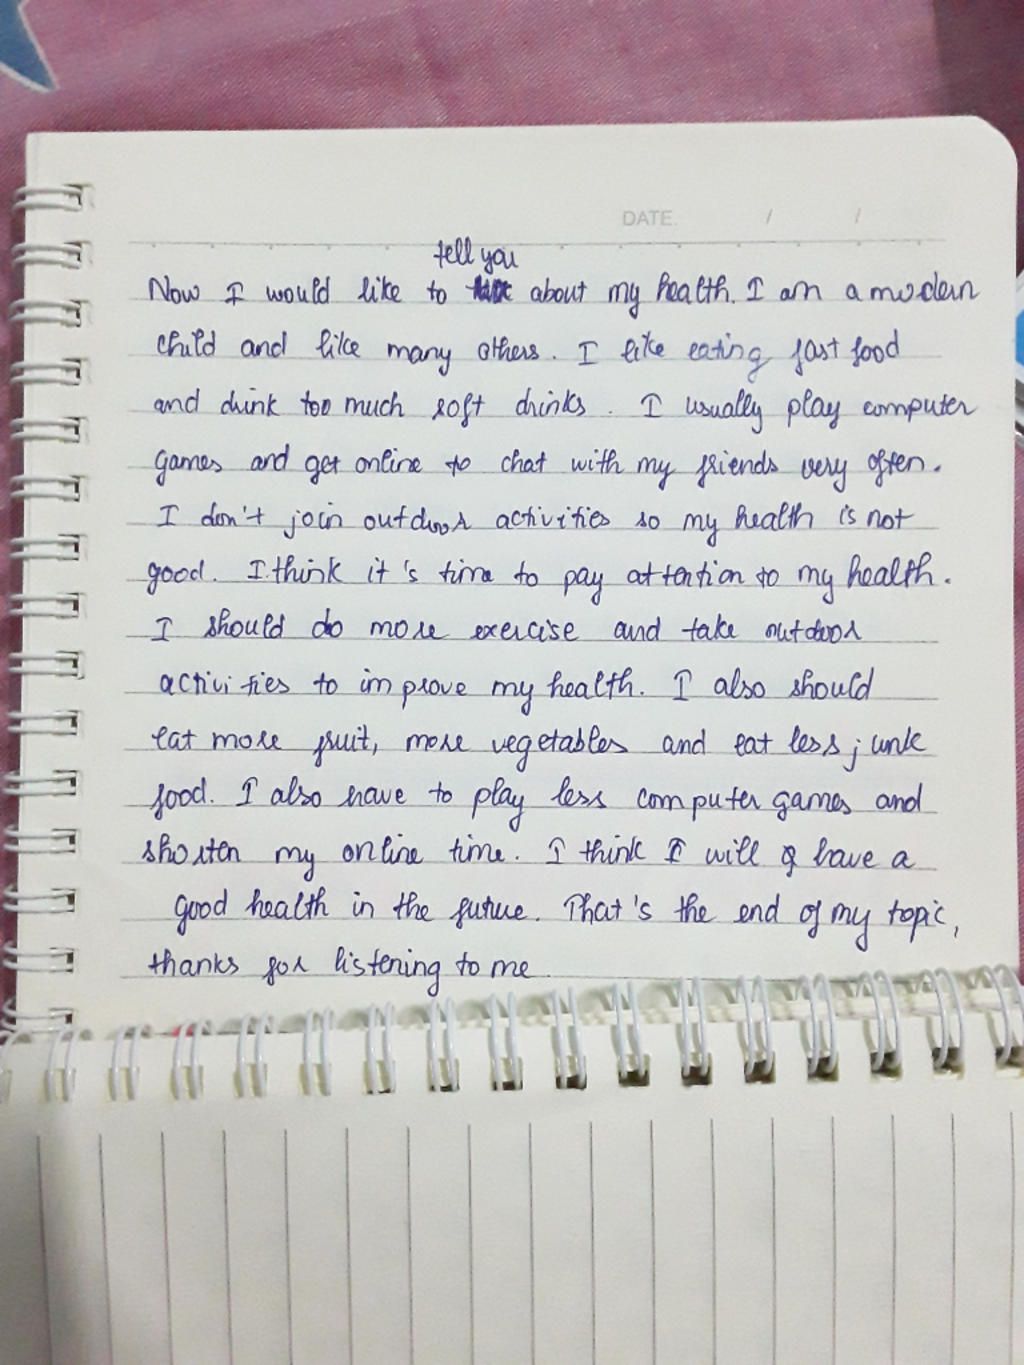 DATE. / /
tell you
Now I would like to about my health. I am a modern
child and like many others. I like eating fast food
and drink too much soft drinks. I usually play computer
games and get online to chat with my friends very often.
I don't join outdoor activities so my health is not
good. I think it's time to pay attention to my health.
I should do more exercise and take outdoor
activities to improve my health. I also should
eat more fruit, more vegetables and eat less junk
food. I also have to play less computer games and
shorten my online time. I think I will have a
good health in the future. That's the end of my topic,
thanks for listening to me